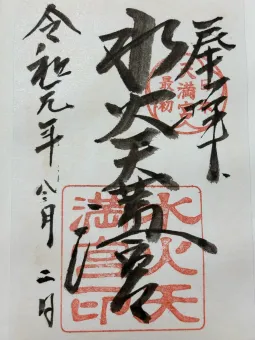 奉拝
日本
最初
天満宮
水火天満宮
水火天
満宮印
令和元年 八月 二日